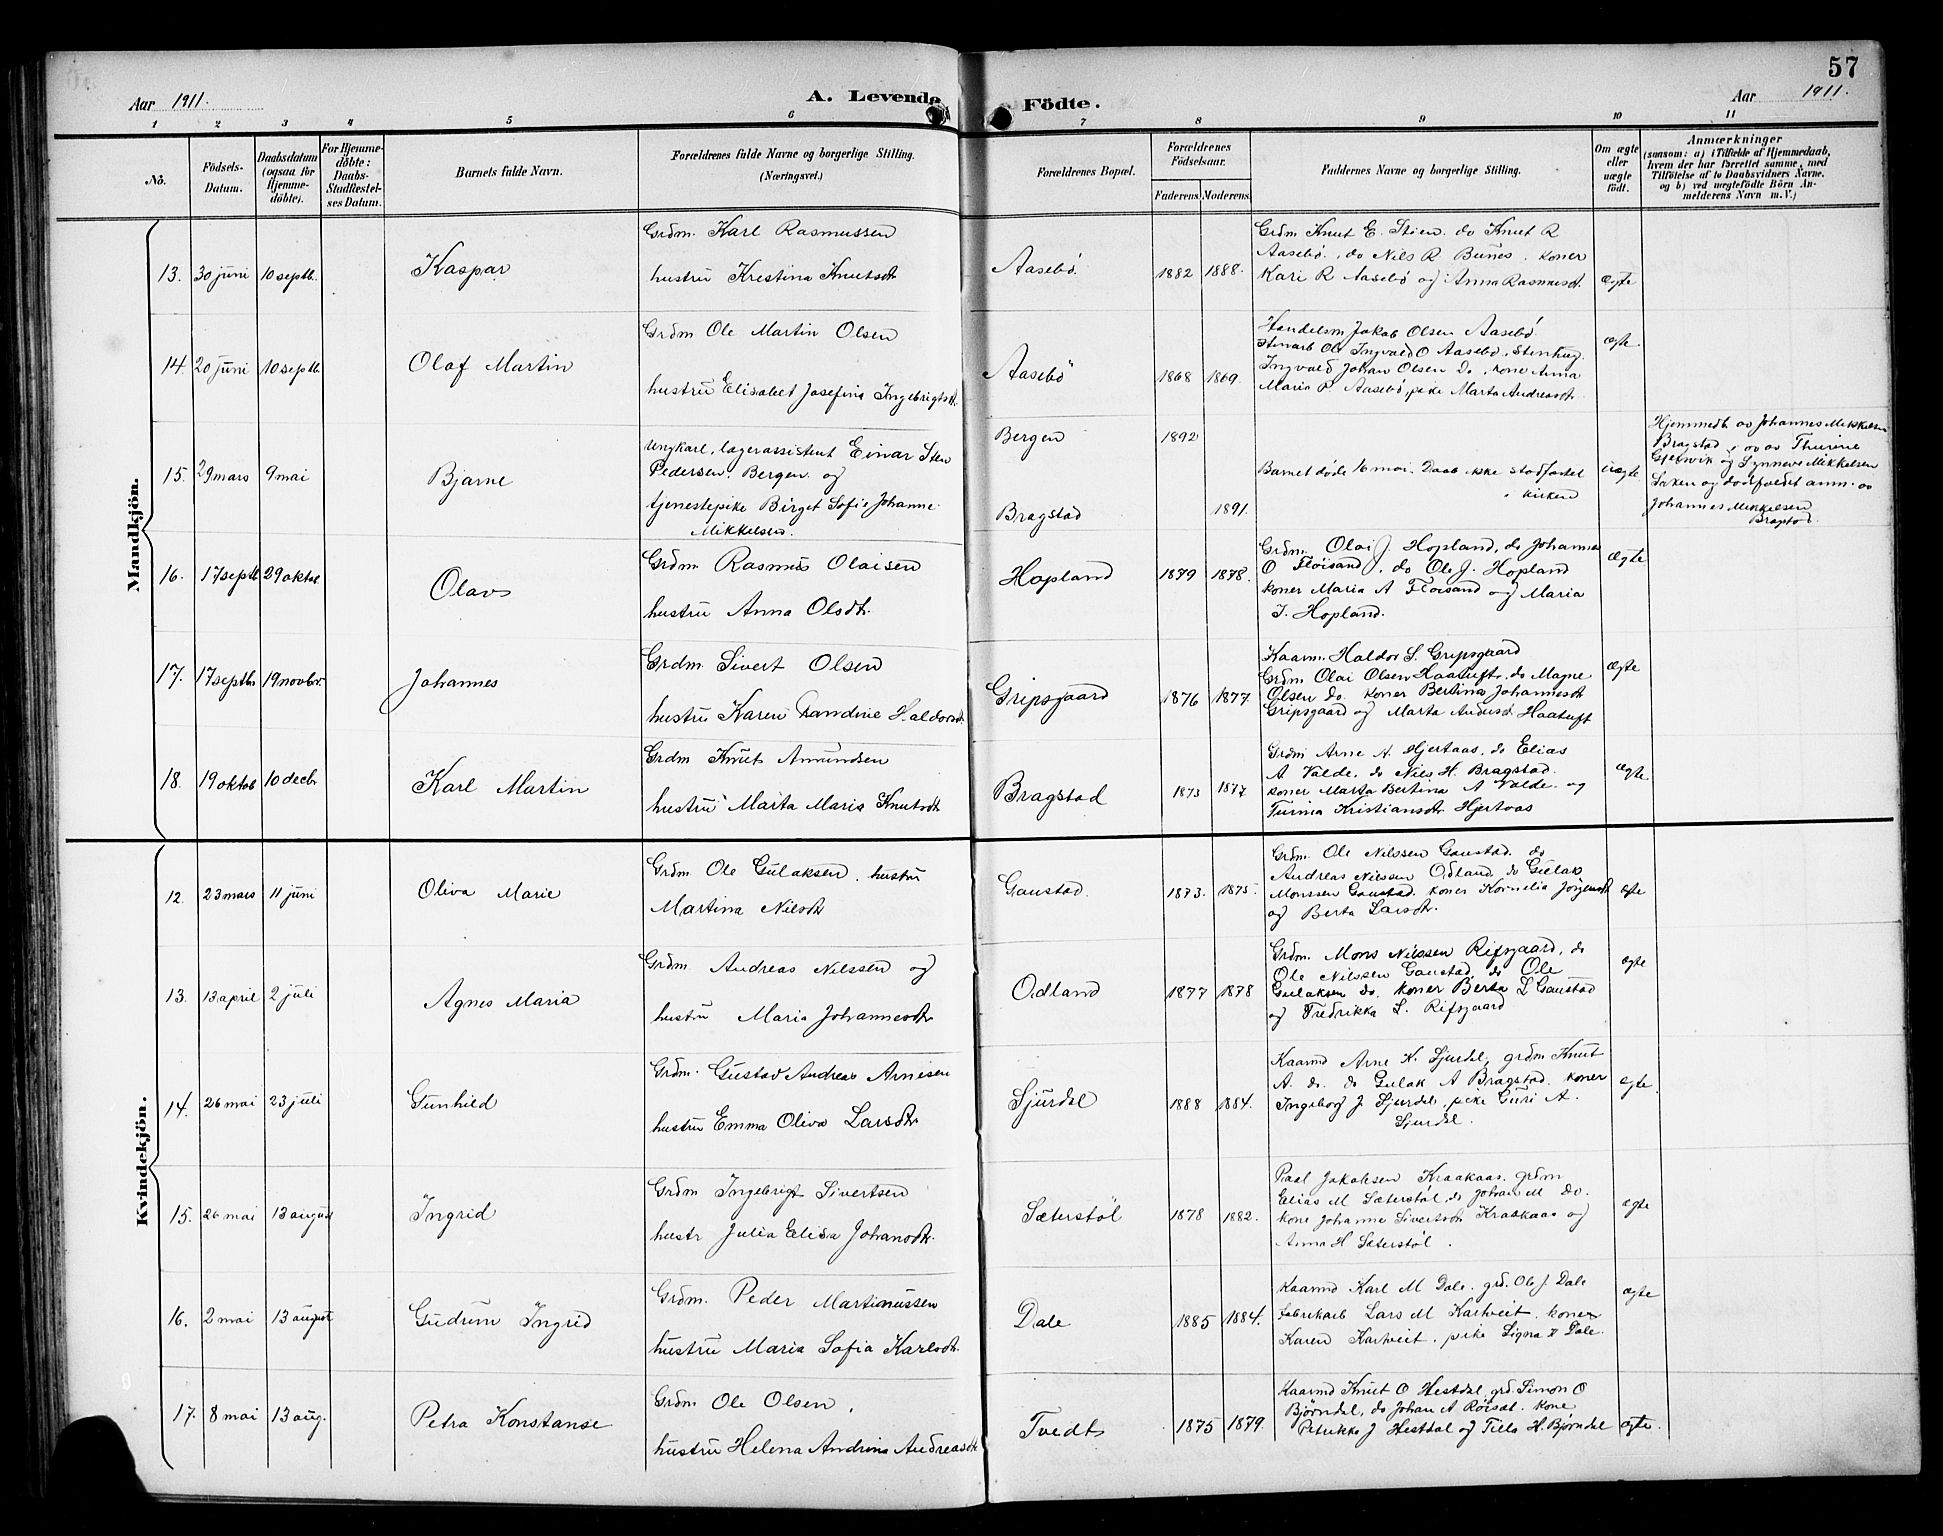 57
Aar 1911.
A. Levende Födte.
Aar 1911.
1 2 3 4 5 6 7 8 9 10 11
No.
Födsels-Datum.
Daabsdatum (ogsaa for Hjemme-döbte).
For Hjemme-döbte: Daabs-Stadfæstel-ses Datum.
Barnets fulde Navn.
Forældrenes fulde Navne og borgerlige Stilling. (Næringsvei.)
Forældrenes Bopæl.
Forældrenes Födselsaar.
Faderens. Moderens.
Faddernes Navne og borgerlige Stilling.
Om ægte eller uægte födt.
Anmærkninger
(saasom: a) i Tilfælde af Hjemmedaab, hvem der har forrettet samme, med Tilföielse af to Daabsvidners Navne, og b) ved uægtefödte Börn An-melderens Navn m. V.)
Mandkjön.
13. 30 juni 10 septb. Kaspar
Grdm. Karl Rasmussen
hustru Kristina Knutsdt
Aasebø 1882 1888.
Grdm Knut E. Stien do Knut R
Aasebø, do Nils R Bunes. koner
Kari R Aasebø og Anna Rasmusdt. ægte
14. 20 juni 10 septb Olaf Martin
Grdm Ole Martin Olsen
hustru Elisabet Josefina Ingebrigtsdt.
Aasebö 1868 1869.
Handelsm Jakob Olsen Aasebö
Stenarb Ole Ingvald O Aasebø, Stenhug.
Ingvald Johan Olsen do, kone Anna
Maria P Aasebø, pike Marta Andreasdt. ægte
15. 29 mars 9 mai Bjarne
Ungkarl, lagerassistent Einar Sten
Pedersen, Bergen og
tjenestepike Birget Sofie Johanne
Mikkelsen.
Bergen 1892
Bragstad 1891.
Barnet døde 16 mai. Daab ikke stadfæstet
i kirken
uægte
Hjemmedt av Johannes Mikkelsen
Bragstad, ov av Thurine
og Synneve Mikkelsen
og dödfaldet anm. av
Johannes Mikkelsen
Bragstad.
16. 17 septb 29 oktob Olavs
Grdm Rasmus Olaisen
hustru Anna Olsdtr.
Hopland 1879 1878.
Grdm. Olai J. Hopland, do Johannes
O Fløisand, do Ole J. Hopland
koner Maria A Fløisand og Maria
J. Hopland.
Ægte
17. 17 septbr 19 novbr. Johannes
Grdm Sivert Olsen
hustru Karen Randine Haldorsdt
Gripsgaard 1876 1877.
Kaarm. Haldor S. Gripsgaard
Grdm Olai Olsen Haatuft, do Magne
Olsen do. koner Bertina Johannesdt
Gripsgaard og Marta Andersdt Haatuft
Ægte
18. 19 oktob 10 decbr. Karl Martin
Grdm Knut Amundsen
hustru Marta Maria Knutsdt
Bragstad 1873 1877
Grdm Arne A. Hjertaas, do Elias
A Valde, do Nils H. Bragstad.
koner Marta Bertina A Valde og
Turina Kristiansdtr Hjertaas
Ægte
Kvindekjön.
12. 23 mars 11 juni Oliva Marie
Grdm Ole Gulaksen, hustru
Martina Nilsdt
Gaustad. 1873. 1875.
Grdm. Ole Nilssen Gaustad, do
Andreas Nilssen Odland, do Gulak
Monssen Gaustad. koner Kornelia Jørgensdt
og Berta Larsdtr.
ægte
13. 13 april 2 juli Agnes Maria
Grdm Andreas Nilssen og
hustru Maria Johannesdt
Odland 1877 1878
Grdm. Mons Nilssen Rifsgaard, do
Ole Nilssen Gaustad, do Ole
Gulaksen do. koner Berta L Gaustad
og Fredrikka L. Rifsgaard
ægte
14. 26 mai 23 juli Gunhild
Grdm. Gustav Andreas Arnesen
hustru Emma Oliva Larsdtr
Sjurdal 1888 1884.
Kaarmd Arne K. Sjurdal, grdm Knut
A. do. do Gulak A Bragstad. koner
Ingeborg J Sjurdal, pike Guri A.
Sjurdal.
ægte
15. 26 mai 13 august Ingrid
Grdm Ingebrigt Sivertsen
hustr Julia Elisa Johansdtr.
Sæterstøl 1878 1882.
Paal Jakobsen Kraakaas, grdm
Elias M Sæterstøl, do Johan M do.
kone Johanna Sivertsdt Kraakaas og
Anna H Sæterstøl.
ægte
16. 2 mai 13 august Gudrun Ingrid
Grdm. Peder Martinussen
hustru Maria Sofia Karlsdt.
Dale 1885 1884.
Kaarmd Karl M Dale, grd. Ole J. Dale
fabrikarb Lars M Kartveit. koner
Karen Kartveit, pike Signa Dale.
ægte
17. 8 mai 13 aug. Petra Konstanse
Grdm Ole Olsen,
hustru Helena Andrina Andreasdt
Tvedt 1875 1879.
Kaarmd Knut O Hestdal, grd. Simon O
Bjørndal, do Johan A Röisal. kone
Petrikka J Hestdal og Tilla H. Bjørndal
ægte.